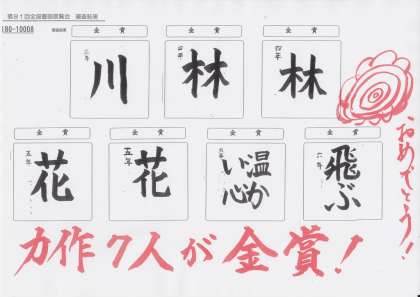 第31回全国書画展覧会 審査結果
180-10008
審査結果
金賞
金賞
金賞
三年
川
四年
林
四年
林
おめでとう!
金賞
金賞
金賞
金賞
五年
花
五年
花
六年
温か
い心
六年
飛ぶ
力作7人が金賞!